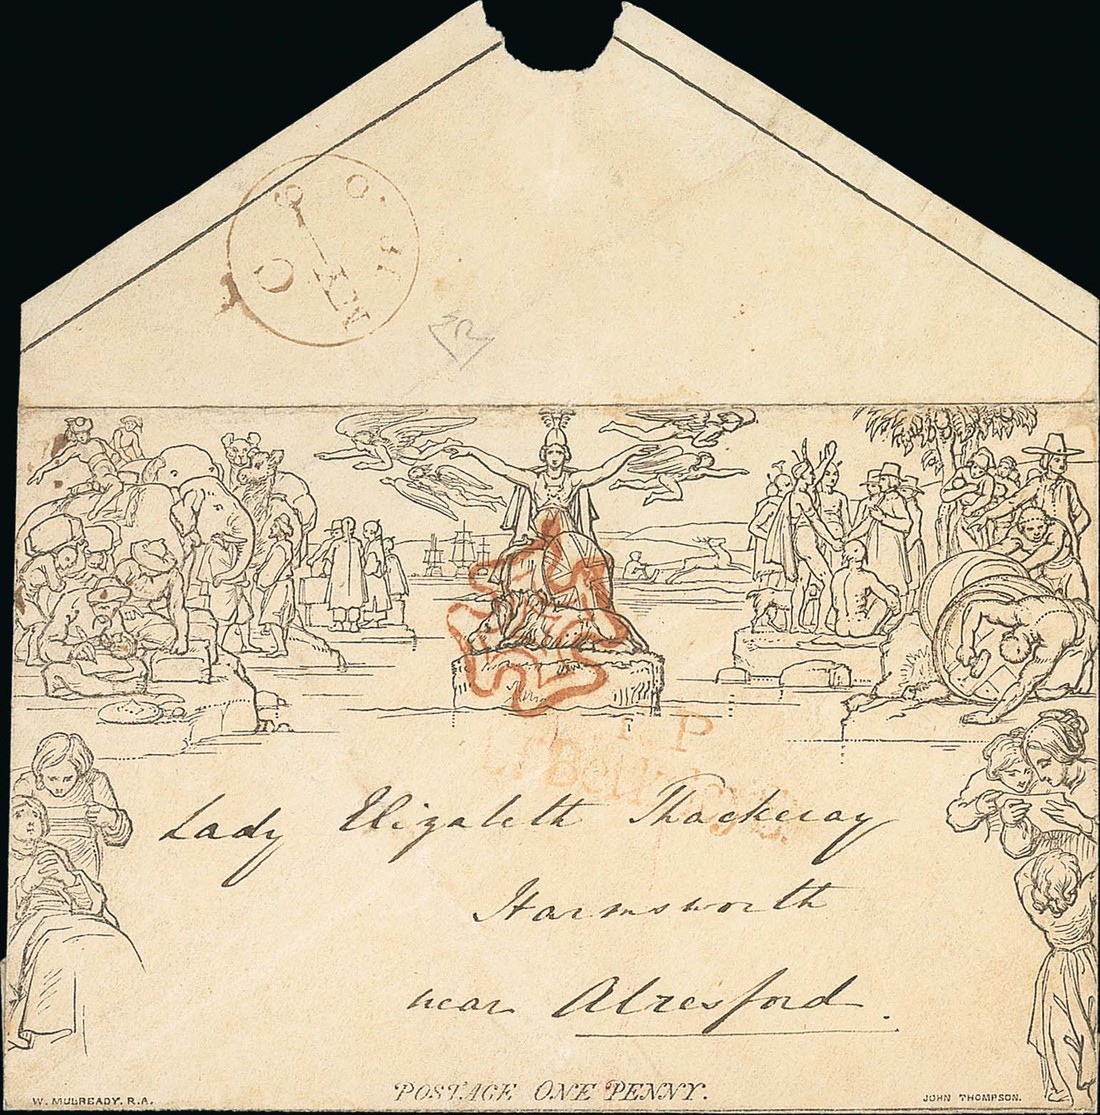 T.P
Lady Elizabeth Thackeray
Harmsworth
near Alresford.
POSTAGE ONE PENNY.
W. MULREADY. R.A.
JOHN THOMPSON.